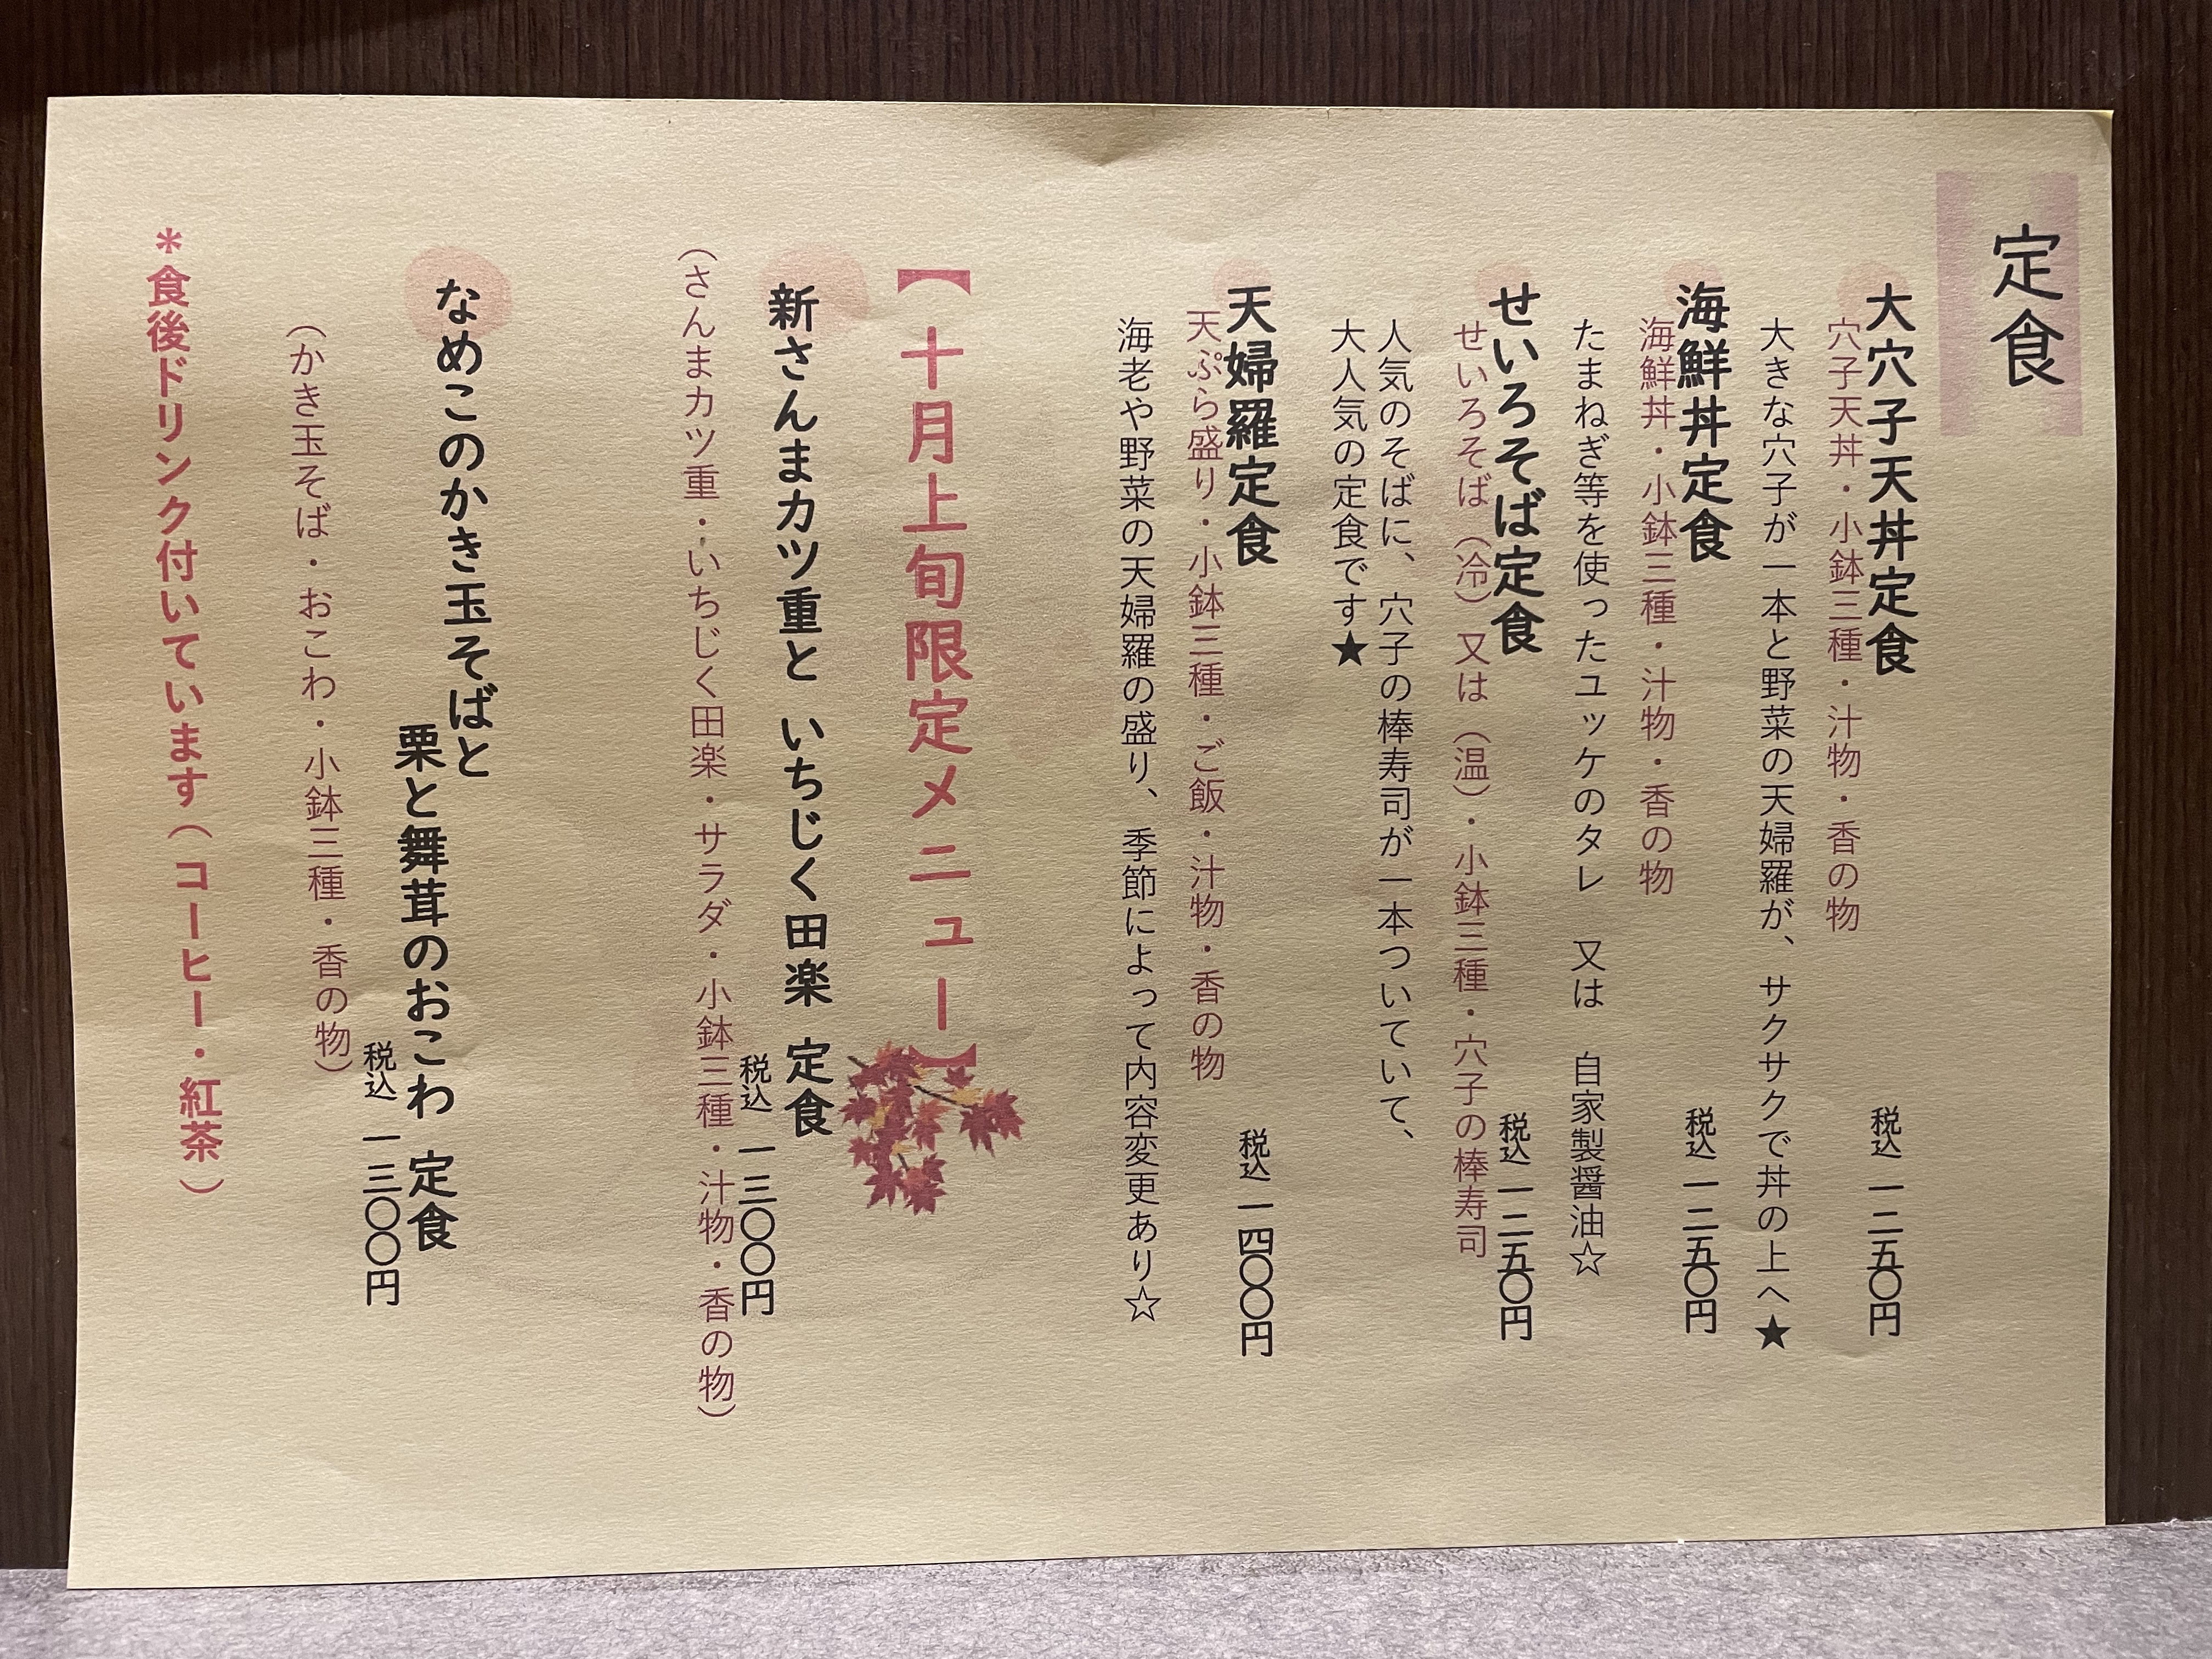 定食
大穴子天丼定食
税込 一二五〇円
穴子天丼・小鉢三種・汁物・香の物
大きな穴子が一本と野菜の天婦羅が、サクサクで丼の上へ★
海鮮丼定食
税込 一二五〇円
海鮮丼・小鉢三種・汁物・香の物
たまねぎ等を使ったユッケのタレ 又は 自家製醤油☆
せいろそば定食
税込 一二五〇円
せいろそば（冷）又は（温）・小鉢三種・穴子の棒寿司
人気のそばに、穴子の棒寿司が一本ついていて、
大人気の定食です★
天婦羅定食
税込 一四〇〇円
天ぷら盛り・小鉢三種・ご飯・汁物・香の物
海老や野菜の天婦羅の盛り、季節によって内容変更あり☆
【十月上旬限定メニュー】
新さんまカツ重と いちじく田楽 定食
税込 一三〇〇円
（さんまカツ重・いちじく田楽・サラダ・小鉢三種・汁物・香の物）
なめこのかき玉そばと
栗と舞茸のおこわ 定食
税込 一三〇〇円
（かき玉そば・おこわ・小鉢三種・香の物）
＊食後ドリンク付いています（コーヒー・紅茶）